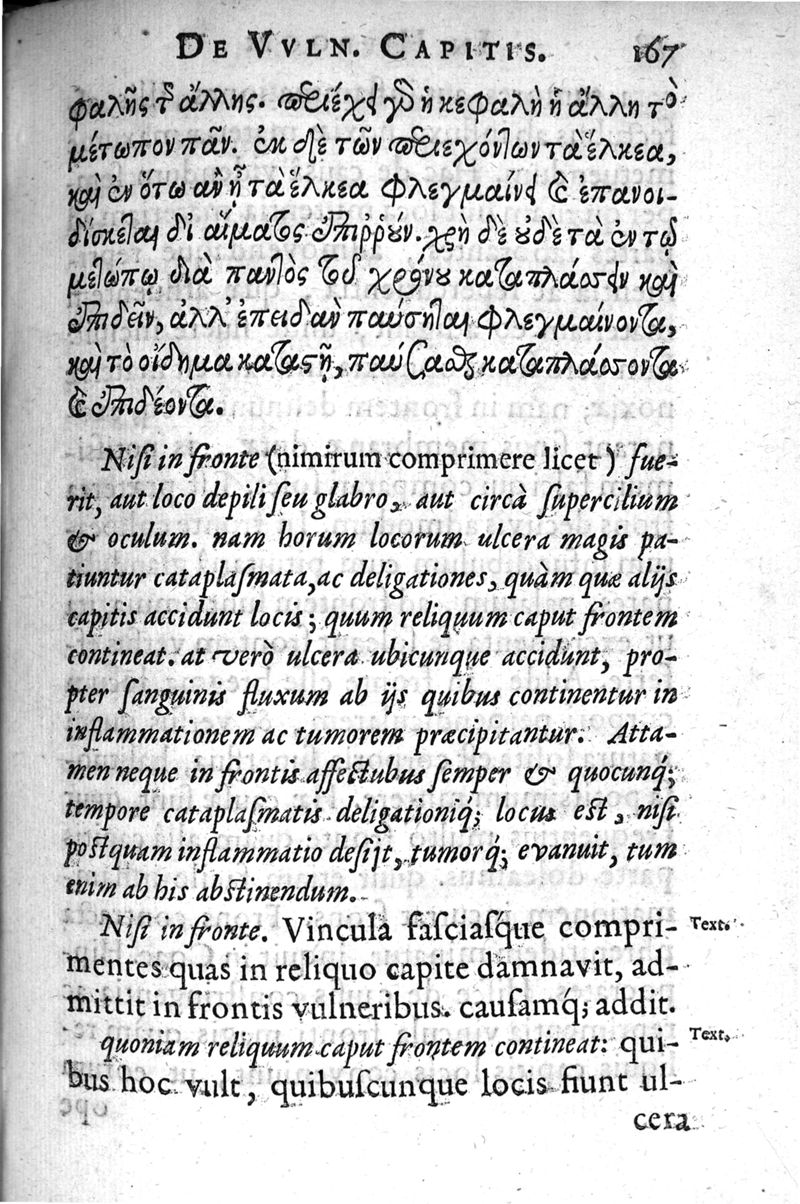 DE VVLN. CAPITIS. 167
φαλῆς τῆ ἄλλης. περιέχει γὸ ἡ κεφαλὴ ἡ ἄλλη τὸ
μέτωπον πᾶν. ἐκ δὲ τῶν περιεχόντων τὰ ἕλκεα,
καὶ ἐν ὅτῳ ἂν ᾖ τὰ ἕλκεα φλεγμαίνει καὶ ἐπανοι-
δίσκεται δἰ αἵματος ἐπιῤῥοήν. χρὴ δὲ οὐδὲ τὰ ἐν τῷ
μετώπῳ διὰ παντὸς τοῦ χρόνου καταπλάσσειν καὶ
ἐπιδεῖν, ἀλλ' ἐπειδὰν παύσηται φλεγμαίνοντα,
καὶ τὸ οἴδημα καταστῇ, παύσασθαι καταπλάσσοντα
καὶ ἐπιδέοντα.
Niſi in fronte (nimirum comprimere licet) fue-
rit, aut loco depili ſeu glabro, aut circà ſupercilium
& oculum. nam horum locorum ulcera magis pa-
tiuntur cataplaſmata, ac deligationes, quàm quæ alijs
capitis accidunt locis; quum reliquum caput frontem
contineat. at verò ulcera ubicunque accidunt, pro-
pter ſanguinis fluxum ab ijs quibus continentur in
inflammationem ac tumorem præcipitantur. Atta-
men neque in frontis affectubus ſemper & quocunq́;
tempore cataplaſmatis deligationiq́; locus eſt, niſi
poſtquam inflammatio deſijt, tumorq́; evanuit, tum
enim ab his abſtinendum.
Niſi in fronte. Vincula faſciaſq́ue compri- Text.
mentes quas in reliquo capite damnavit, ad-
mittit in frontis vulneribus. cauſamq́; addit.
quoniam reliquum caput frontem contineat: qui- Text.
bus hoc vult, quibuſcunque locis fiunt ul-
cera